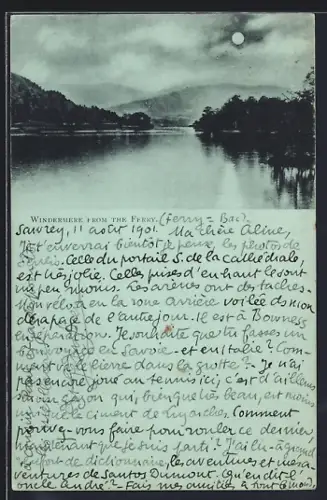 WINDERMERE FROM THE FERRY. (Ferry = Bac).
Sawrey, 11 août 1901. Ma chère Aline,
Je t'enverrai bientôt je pense, les photos de
Celle du portail S. de la cathédrale,
est très jolie. Celles prises d'en haut le sont
un peu moins. Les arènes ont des taches.
Mon vélo a eu la roue arrière voilée dans mon
dérapage de l'autre jour. Il est à Bowness
en réparation. Je souhaite que tu fasses un
bon voyage en Savoie - et en Italie? Com-
ment va le lierre dans la grotte? - Je n'ai
pas encore joué au tennis ici; c'est d'ailleurs
sur un gazon qui, bien que très beau, est moins
uni que le ciment de Comment
pouvez-vous faire pour rouler ce dernier,
maintenant que je suis parti? J'ai lu à grand
renfort de dictionnaire, les aventures et mésa-
ventures de Santos Dumont. Qu'en dit l'
oncle André? - Fais mes amitiés à tout